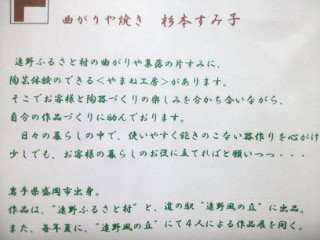 曲がりや焼き 杉本すみ子
遠野ふるさと村の曲がりや集落の片すみに、
陶芸体験のできる＜やまね工房＞があります。
そこでお客様と陶器づくりの楽しみを分かち合いながら、
自分の作品づくりに励んでおります。
日々の暮らしの中で、使いやすく飽きのこない器作りを心がけ
少しでも、お客様の暮らしのお役に立てればと願いつつ・・・
岩手県盛岡市出身。
作品は、"遠野ふるさと村"と、道の駅"遠野風の丘"に出品。
また、毎年夏に、"遠野風の丘"にて４人による作品展を開く。